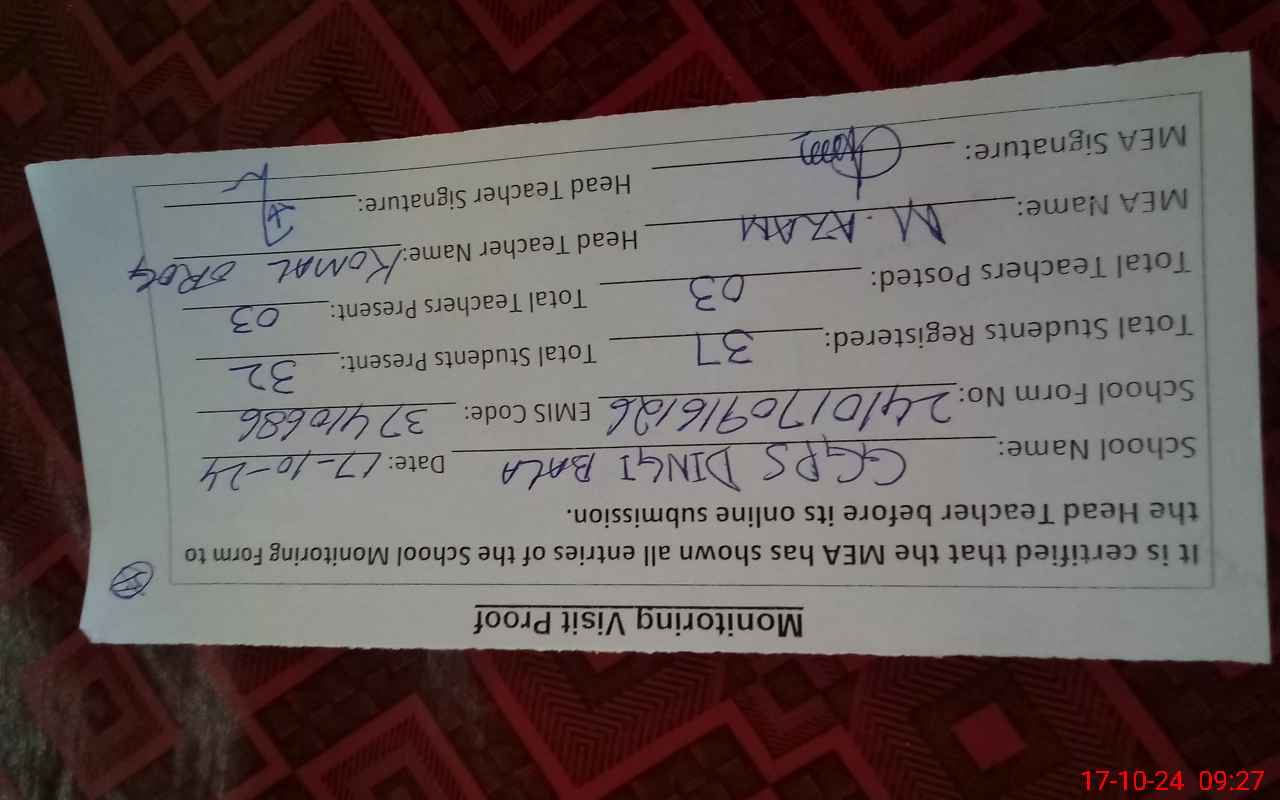 Monitoring Visit Proof
It is certified that the MEA has shown all entries of the School Monitoring Form to
the Head Teacher before its online submission.
School Name: GGPS DINGI BALA Date: 17-10-24
School Form No: 2410170916126 EMIS Code: 37410686
Total Students Registered: 37 Total Students Present: 32
Total Teachers Posted: 03 Total Teachers Present: 03
MEA Name: M. AZAM Head Teacher Name: KOMAL
MEA Signature: Head Teacher Signature:
17-10-24 09:27